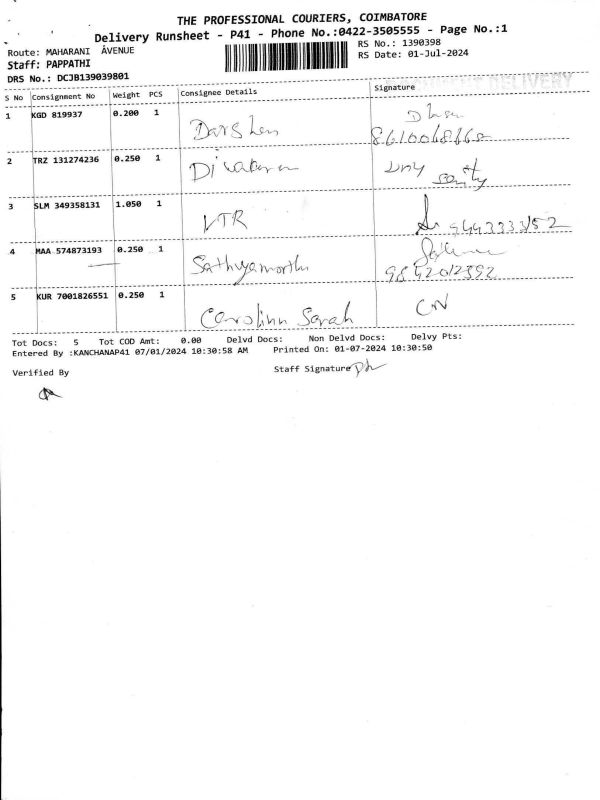 THE PROFESSIONAL COURIERS, COIMBATORE
Delivery Runsheet - P41 - Phone No.:0422-3505555 - Page No.:1
Route: MAHARANI AVENUE
RS No.: 1390398
Staff: PAPPATHI
RS Date: 01-Jul-2024
DRS No.: DCJB139039801
DELIVERY
S No Consignment No Weight PCS Consignee Details Signature
1 KGD 819937 0.200 1 Darshan
8610068668
2 TRZ 131274236 0.250 1 Divakaran
3 SLM 349358131 1.050 1 VTR 9443333152
4 MAA 574873193 0.250 1 Sathyamorthi
9842012392
5 KUR 7001826551 0.250 1 Carolinn Sarah CN
Tot Docs: 5 Tot COD Amt: 0.00 Delvd Docs: Non Delvd Docs: Delvy Pts:
Entered By :KANCHANAP41 07/01/2024 10:30:58 AM Printed On: 01-07-2024 10:30:50
Verified By Staff Signature